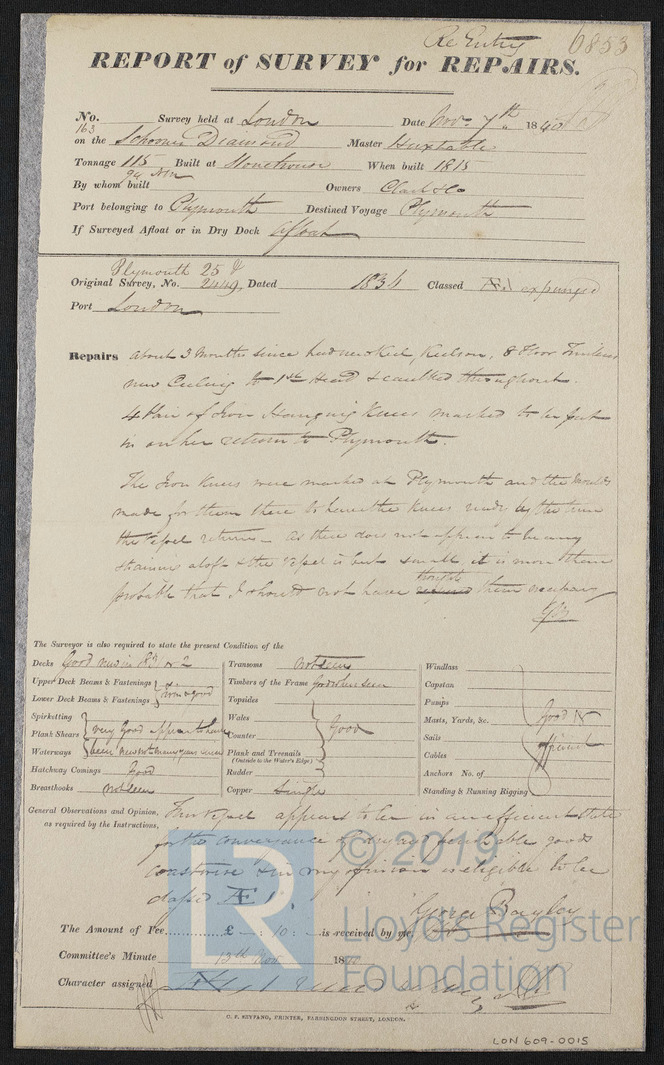 Re Entry 6853
REPORT of SURVEY for REPAIRS.
No. 163 Survey held at London Date Nov. 7th 1840
on the Schooner Diamond Master Huxtable
Tonnage 115 Built at Stonehouse When built 1815
94 NM
By whom built Owners Clark & Co
Port belonging to Plymouth Destined Voyage Plymouth
If Surveyed Afloat or in Dry Dock afloat
Plymouth 25
Original Survey, No. 2449 Dated 1836 Classed Æ1 expunged
Port London
Repairs about 3 Months since had new Keel, Keelson, 8 Floor Timbers
new Ceiling to 1st Head & caulked throughout.
4 Pair of Iron Hanging Knees marked to be put
in on her return to Plymouth.
The Iron Knees were marked at Plymouth and the Moulds
made for them there to have the Knees ready by the time
the Vessel returns - As there does not appear to be any
straining aloft & the Vessel is but small, it is more than
probable that I should not have thought them necessary
GB
The Surveyor is also required to state the present Condition of the
Decks Good new in 183 or 2
Upper Deck Beams & Fastenings
Lower Deck Beams & Fastenings Iron & good
Spirketting
Plank Shears very Good appear to have
Waterways been new not many years since
Hatchway Comings Good
Breasthooks not seen
Transoms not seen
Timbers of the Frame Good when seen
Topsides
Wales
Counter Good
Plank and Treenails
(Outside to the Water's Edge)
Rudder
Copper Single
Windlass
Capstan
Pumps
Masts, Yards, &c. Good &
Sails
Cables efficient
Anchors No. of
Standing & Running Rigging
General Observations and Opinion, This Vessel appears to be in an efficient state
as required by the Instructions, for the conveyance of dry & perishable goods
coastwise & in my opinion is eligible to be
classed Æ 1.
George Bayley
The Amount of Fee £ - : 10 : - is received by me,
Committee's Minute 13th Nov 18
Character assigned Æ 1
C. F. SEYFANG, PRINTER, FARRINGDON STREET, LONDON.
LON 609-0015
© 2019
Lloyd's Register
Foundation
LR